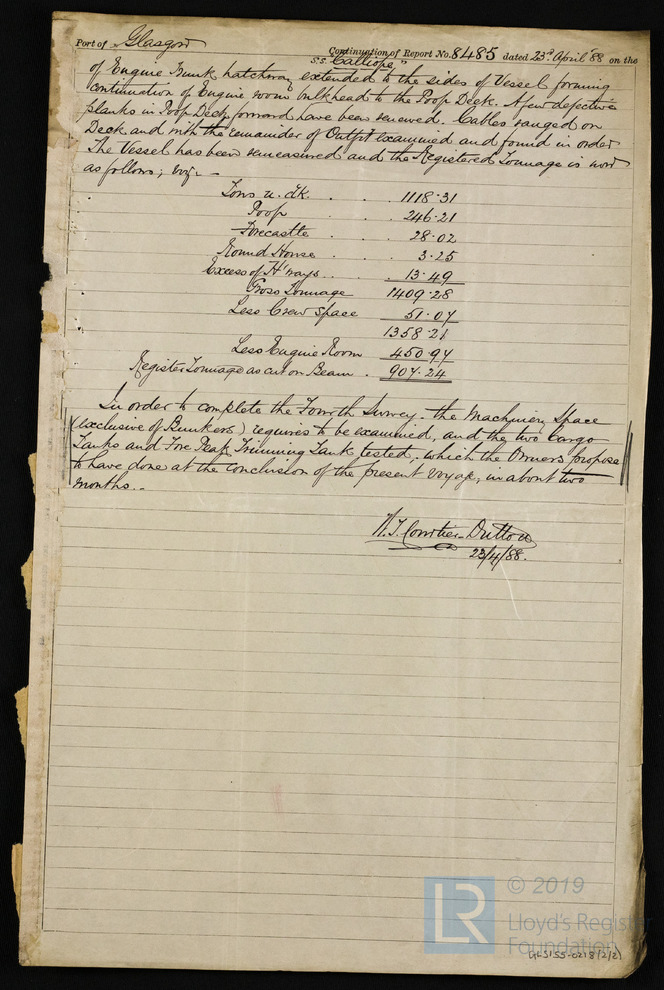 Port of Glasgow Continuation of Report No. 8485 dated 23rd April '88 on the
s.s. "Calliope"
of Engine Trunk hatchway extended to the sides of Vessel forming
continuation of Engine room bulkhead to the Poop Deck. A few defective
planks in Poop Deck forward have been renewed. Cables ranged on
Deck and with the remainder of Outfit examined and found in order
The Vessel has been remeasured and the Registered Tonnage is now
as follows; viz. -
Tons u. dk. . . . 1118.31
Poop . . . 246.21
Forecastle . . . 28.02
Round House . . . 3.25
Excess of H'ways . . . 13.49
Gross Tonnage 1409.28
Less Crew Space 51.07
1358.21
Less Engine Room 450.97
Register Tonnage as cut on Beam . 907.24
In order to complete the Fourth Survey - the Machinery Space
(exclusive of Bunkers) requires to be examined, and the two Cargo
Tanks and Fore Peak Trimming Tank tested; which the Owners propose
to have done at the conclusion of the present voyage, in about two
months. -
Courtier-Dutton
23/4/88.
LR
© 2019
Lloyd's Register
Foundation